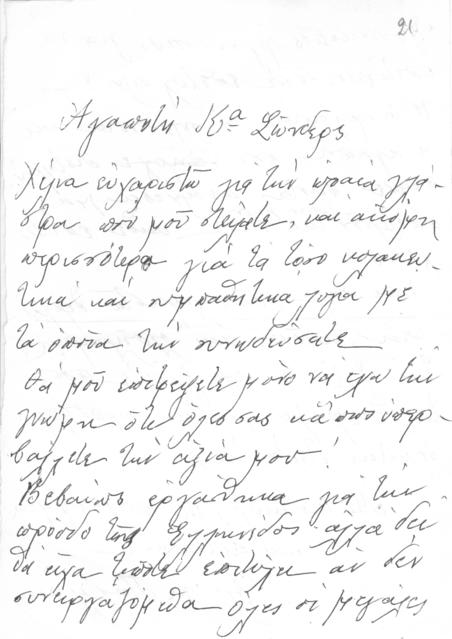 21
Αγαπητή Κα Σώντερς
Χίλια ευχαριστώ για την ωραία γλά-
στρα που μου στείλατε, και ακόμη
περισσότερο για τα τόσο κολακευ-
τικά και συμπαθητικά λόγια με
τα οποία την συνοδεύσατε
Θα μου επιτρέψετε μόνο να έχω την
γνώμη ότι όλες σας κάπου υπερ-
βάλλετε την αξία μου!
Βεβαίως εργάσθηκα για την
πρόοδο της Ελληνίδος αλλά δεν
θα είχα τίποτε επιτύχει αν δεν
συνεργαζόμεθα όλες οι μεγάλες